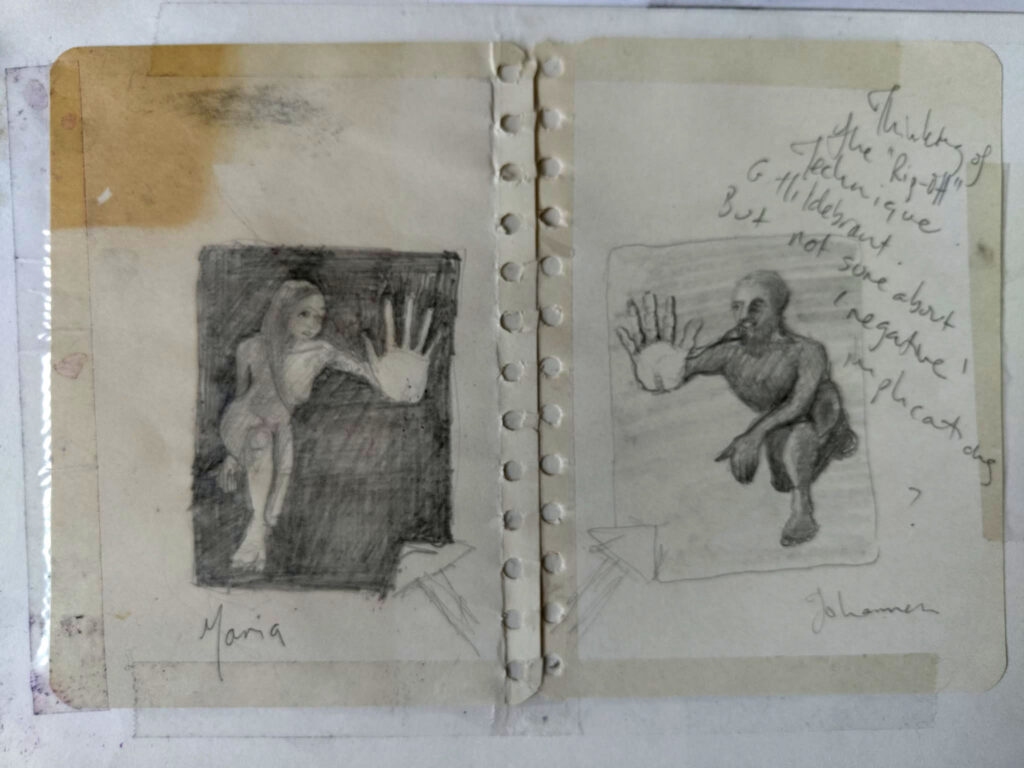 Thinking of
the "Rip-Off"
Technique
G Hildebrant.
But not sure about
'negative'
implications
?
Maria
Johannes